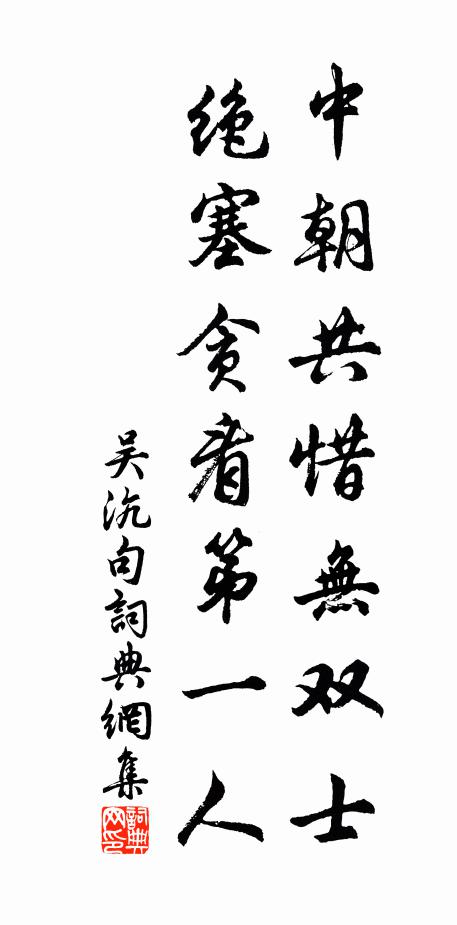 中朝共惜無双士
绝塞贪看第一人
吴沆句詞典網集
詞典网印